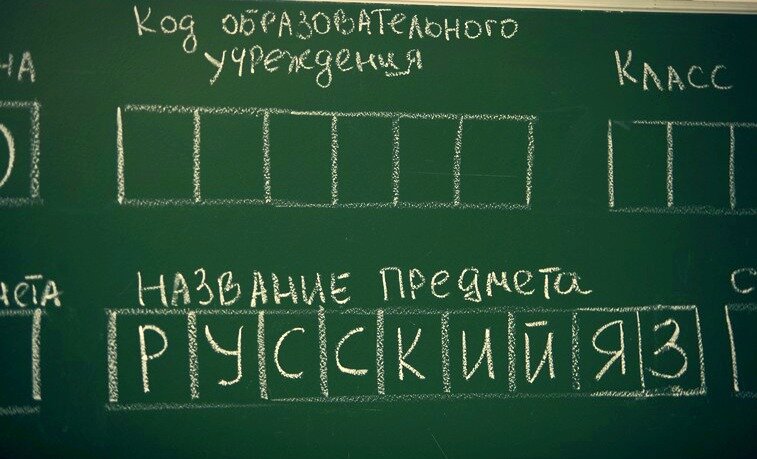 Код образовательного
учреждения
Класс
Название предмета
РУССКИЙ ЯЗ